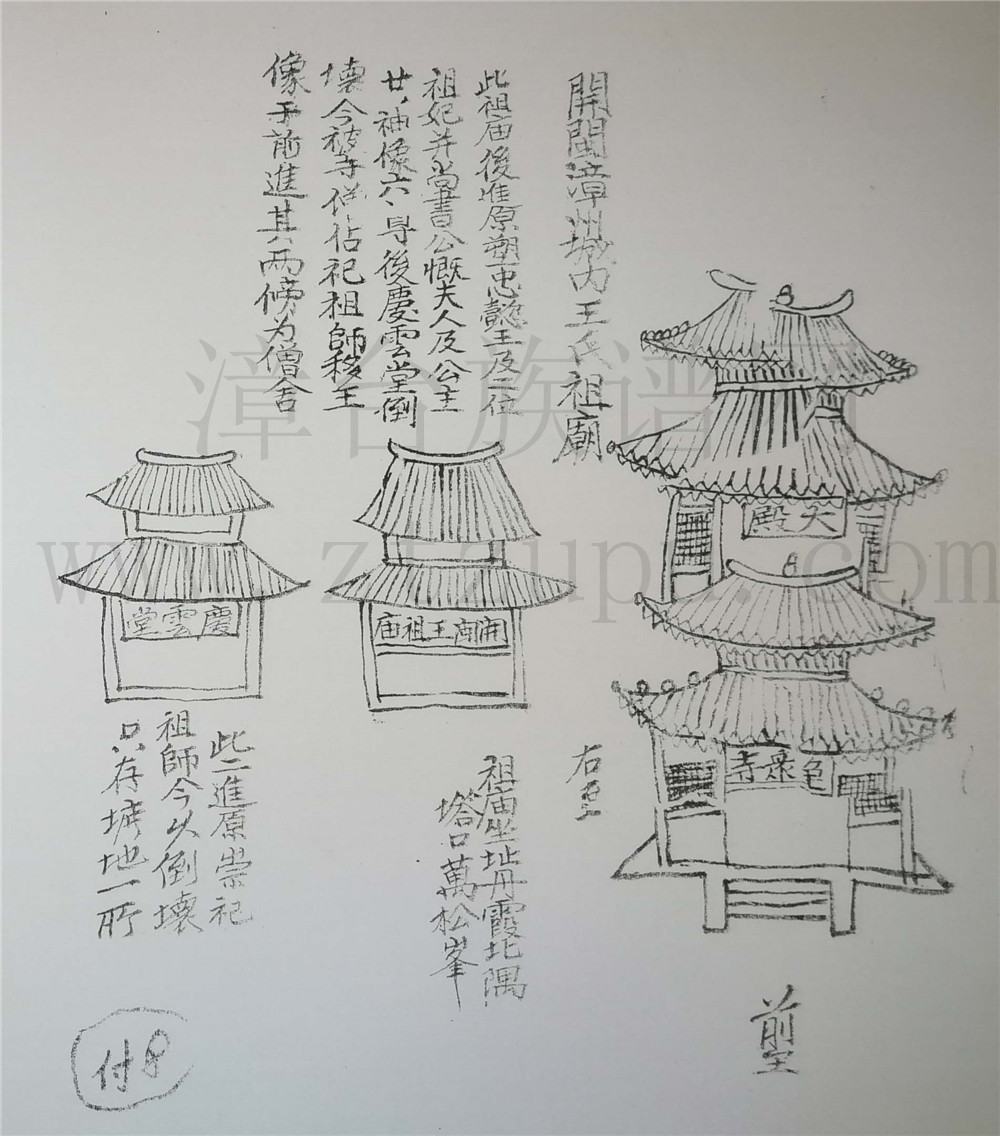 開閩漳州城内王氏祖廟
此祖庙後進原塑忠懿王及二位
祖妃并尚書公慨夫人及公主
廿、神像六、身後慶雲堂倒
壞今被寺僧佔祀祖師移王
像于前進其兩傍为僧舍
大殿
開閩王祖庙
慶雲堂
右
祖庙坐址丹霞北隅
塔口萬松峯
此二進原崇祀
祖師今以倒壞
只存城地一所
前
付8
漳台族谱
www.zizupu.com